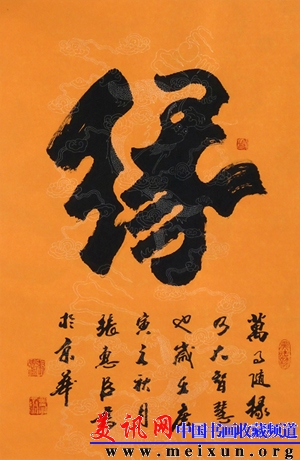 缘
萬事随緣
乃大智慧
也歲在庚
寅之秋月
張惠臣書
於京華
美讯网 中国书画收藏频道
www.meixun.org